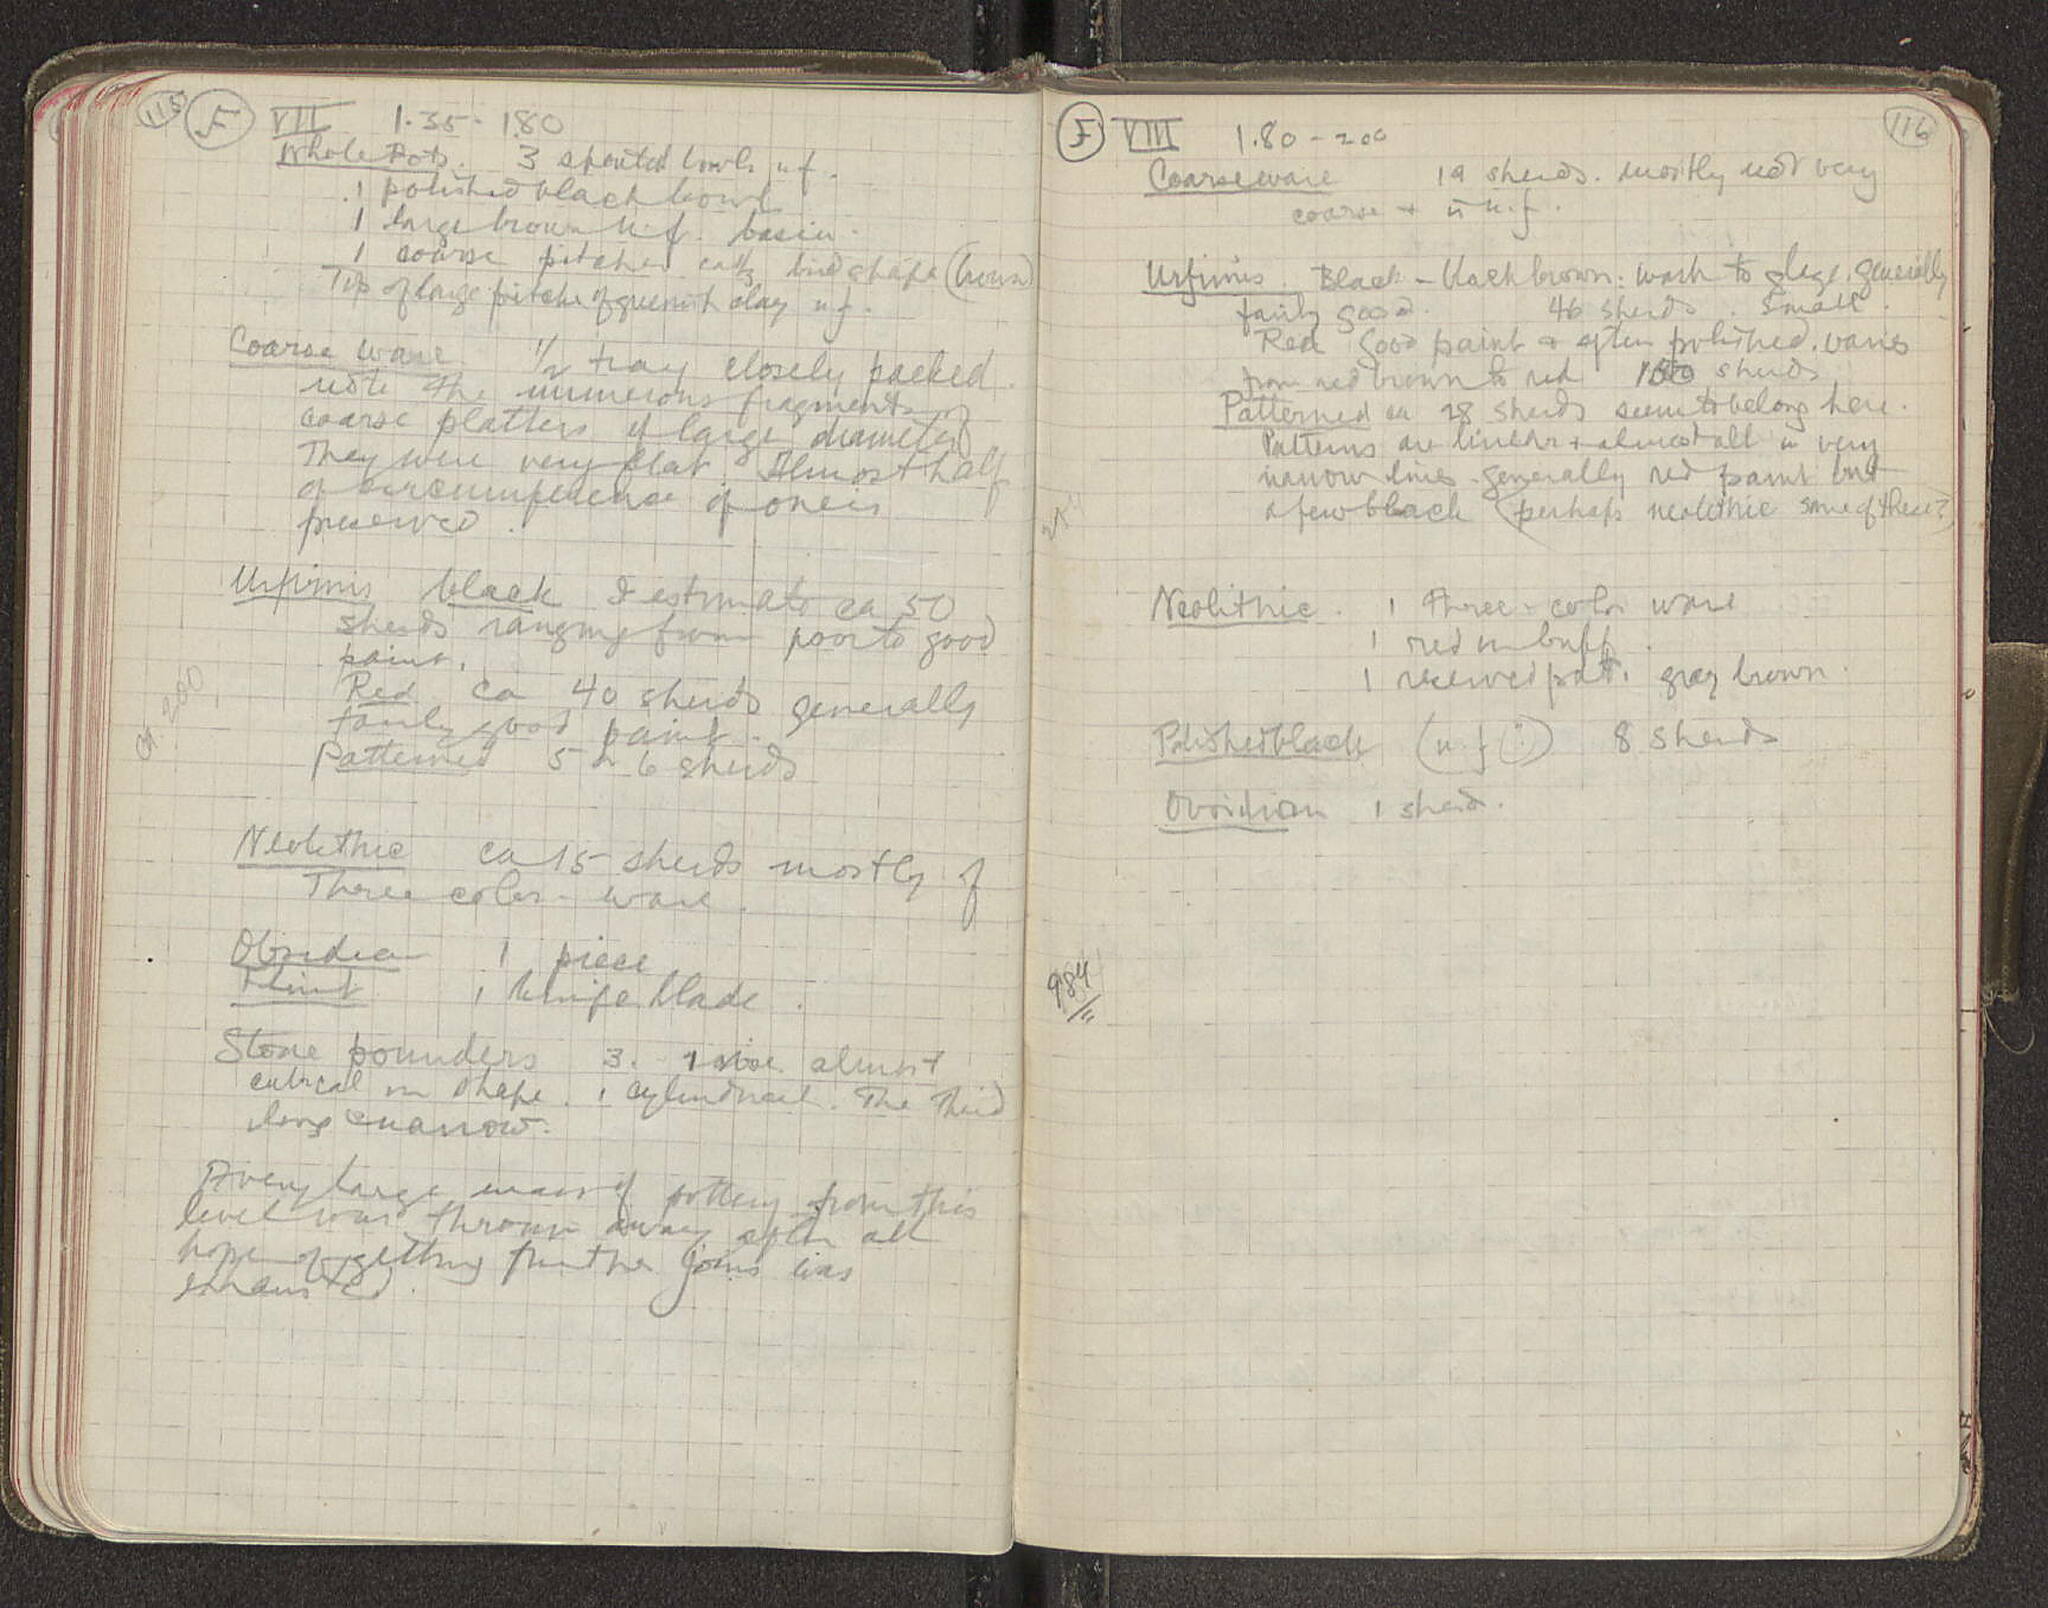 115 F VII 1.35 - 1.80
Whole Pots. 3 spouted bowls u.f.
1 polished black bowl
1 large brown u.f. basin.
1 coarse pitcher shape
Top of large pitcher of greenish clay u.f.
Coarse ware 1/2 tray closely packed.
note the numerous fragments of
coarse platters of large diameter
They were very flat. Almost half
of circumference of one is
preserved.
Urfirnis black I estimate ca 50
sherds ranging from poor to good
paint.
Red ca 40 sherds generally
fairly good paint.
Patterned 5 or 6 sherds
ca 200
Neolithic ca 15 sherds mostly of
Three color ware.
Obsidian 1 piece
Flint 1 knife blade.
Stone pounders 3. 1 almost
cubical in shape. 1 cylindrical. The third
long & narrow.
A very large mass of pottery from this
level was thrown away after all
hope of getting further joins was
exhausted.
F VIII 1.80 - 200 116
Coarse ware 19 sherds. mostly not very
coarse + u.f.
Urfirnis. Black - black brown: wash to glaze, generally
fairly good. 46 sherds. Small.
Red Good paint & often polished. varies
from red brown to red sherds
Patterned ca 28 sherds seem to belong here.
Patterns are linear + almost all in very
narrow lines. generally red paint but
a few black (perhaps neolithic some of these?)
Neolithic. 1 Three-color ware
1 red on buff.
1 reserved patt. gray brown.
Polished black (u.f (?)) 8 sherds
Obsidian 1 sherd.
984